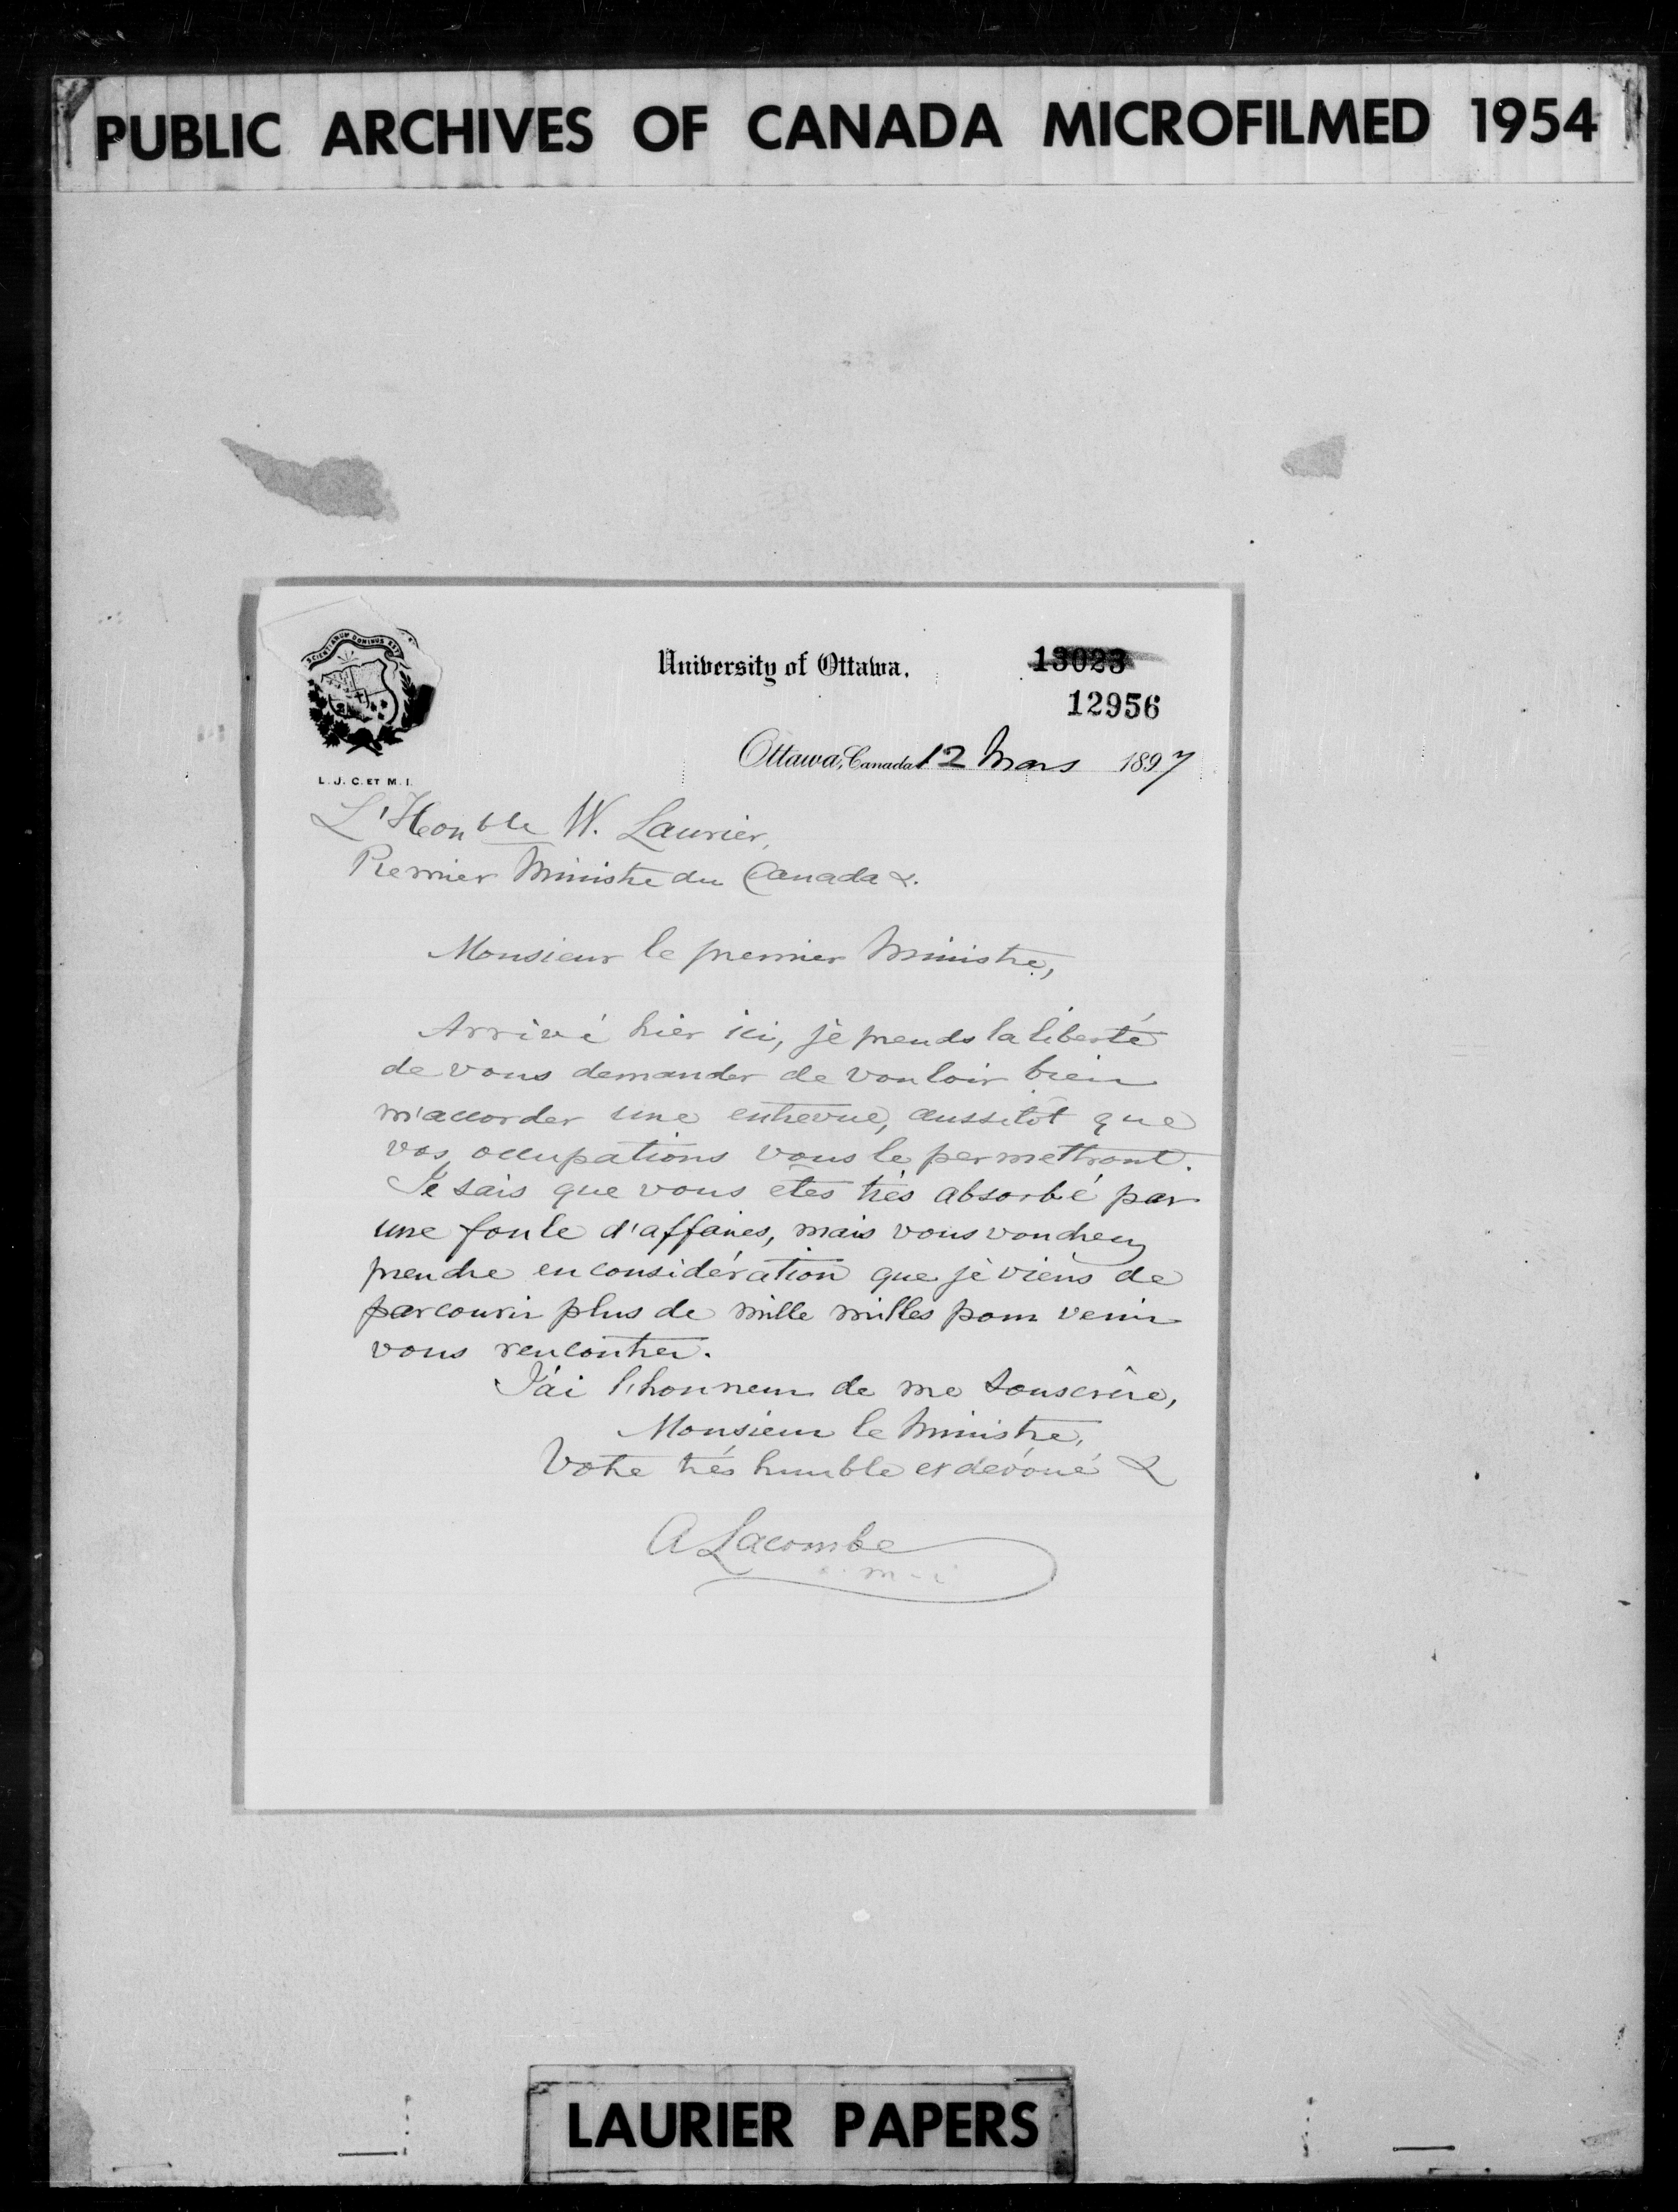 PUBLIC ARCHIVES OF CANADA MICROFILMED 1954
SCIENTIARUM DOMINUS EST
University of Ottawa.
13023
12956
Ottawa, Canada 12 Mars 1897
L. J. C. ET M. I.
L'Honble W. Laurier,
Premier Ministre du Canada &.
Monsieur le premier Ministre,
Arrivé hier ici, je prends la liberté
de vous demander de vouloir bien
m'accorder une entrevue, aussitôt que
vos occupations vous le permettront.
Je sais que vous êtes très absorbé par
une foule d'affaires, mais vous voudrez
prendre en considération que je viens de
parcourir plus de mille milles pour venir
vous rencontrer.
J'ai l'honneur de me souscrire,
Monsieur le Ministre,
Votre très humble et dévoué &
A Lacombe
o. m. i
LAURIER PAPERS